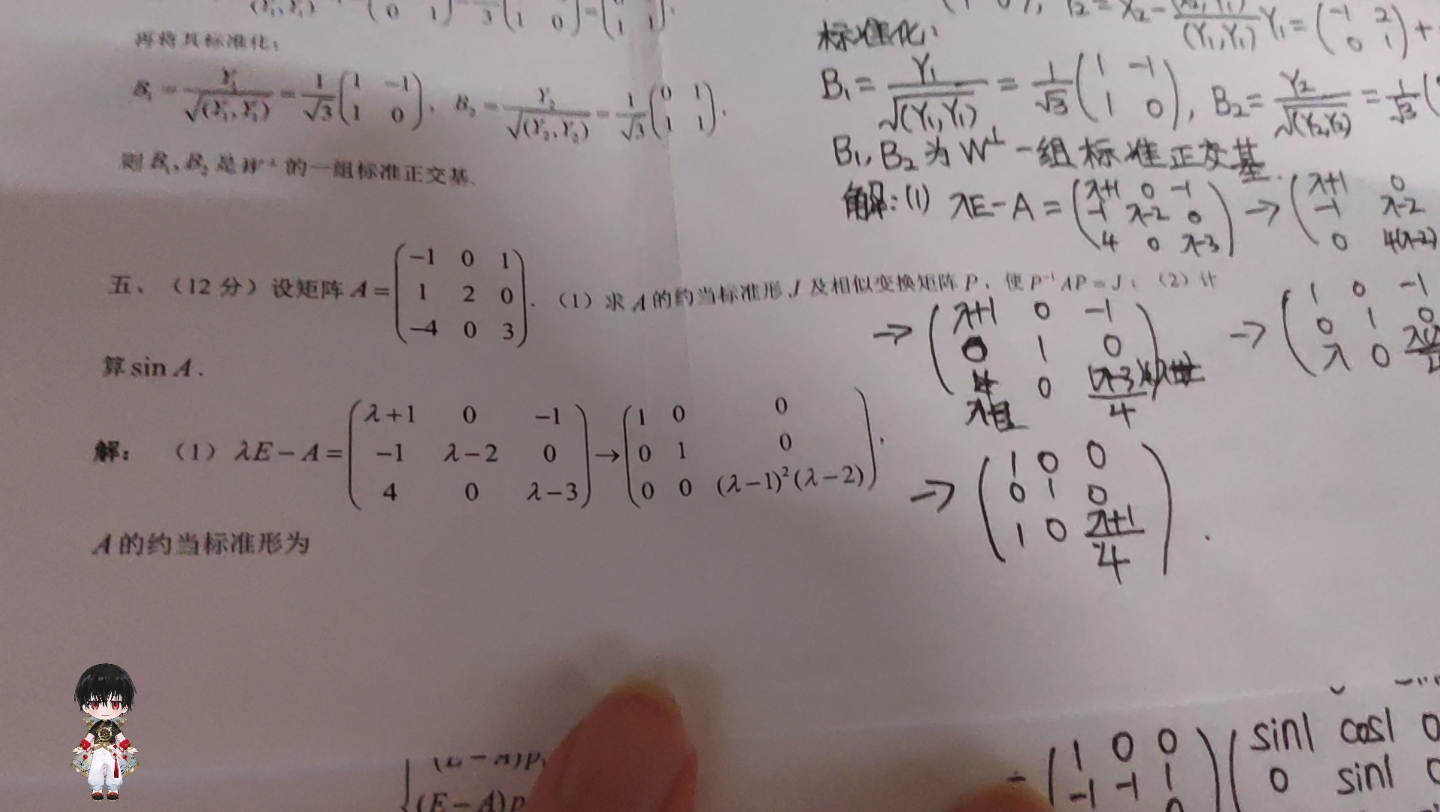 再将其标准化：
B₁ = Y₁/√(Y₁,Y₁) = 1/√3 (1 −1; 1 0)， B₂ = Y₂/√(Y₂,Y₂) = 1/√3 (0 1; 1 1).
则 B₁, B₂ 是 W⊥ 的一组标准正交基.
五、（12 分）设矩阵 A = (−1 0 1; 1 2 0; −4 0 3)．（1）求 A 的约当标准形 J 及相似变换矩阵 P，使 P⁻¹AP = J；（2）计
算 sin A．
解： （1）λE − A = (λ+1 0 −1; −1 λ−2 0; 4 0 λ−3) → (1 0 0; 0 1 0; 0 0 (λ−1)²(λ−2))．
A 的约当标准形为
(E − A)p
标准化：
B₁ = Y₁/√(Y₁,Y₁) = 1/√3 (1 −1; 1 0), B₂ = Y₂/√(Y₂,Y₂) = 1/√3
B₁, B₂ 为 W⊥ 一组标准正交基.
解：(1) λE − A = (λ+1 0 −1; −1 λ−2 0; 4 0 λ−3) → (λ+1 0; −1 λ−2; 0 4(λ−2)
→ (λ+1 0 −1; 0 1 0; 0 → (1 0 −1; 0 1 0; λ 0
→ (1 0 0; 0 1 0; 1 0 (λ+1)/4).
(1 0 0; −1 −1 1 (sin1 cos1 0; 0 sin1